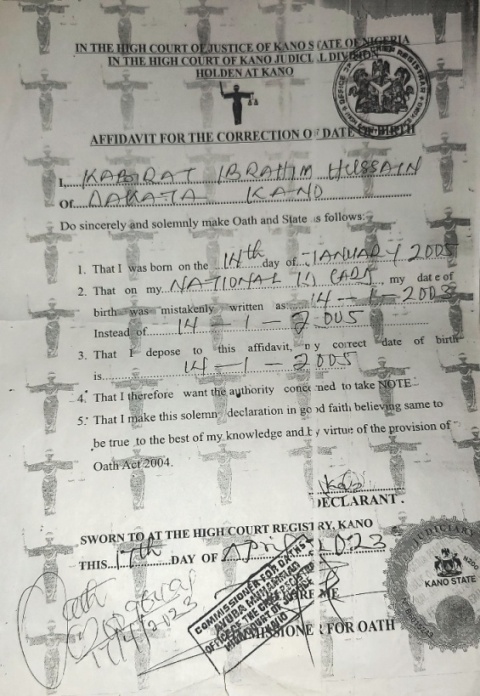 IN THE HIGH COURT OF JUSTICE OF KANO STATE OF NIGERIA
IN THE HIGH COURT OF KANO JUDICIAL DIVISION
HOLDEN AT KANO
AFFIDAVIT FOR THE CORRECTION OF DATE OF BIRTH
I, KABIRAT IBRAHIM HUSSAIN
Of DAKATA KANO
Do sincerely and solemnly make Oath and State as follows:
1. That I was born on the 14th day of JANUARY 2005
2. That on my NATIONAL ID CARD, my date of
birth was mistakenly written as: 14-1-2003
Instead of 14-1-2005
3. That I depose to this affidavit, my correct date of birth
is 14-1-2005
4. That I therefore want the authority concerned to take NOTE
5. That I make this solemn declaration in good faith believing same to
be true to the best of my knowledge and by virtue of the provision of
Oath Act 2004.
DECLARANT.
SWORN TO AT THE HIGH COURT REGISTRY, KANO
THIS 17th DAY OF April 2023
BEFORE ME
COMMISSIONER FOR OATH
COMMISSIONER FOR OATHS
HIGH COURT OF JUSTICE
KANO
17/4/2023
JUDICIARY
KANO STATE
N200